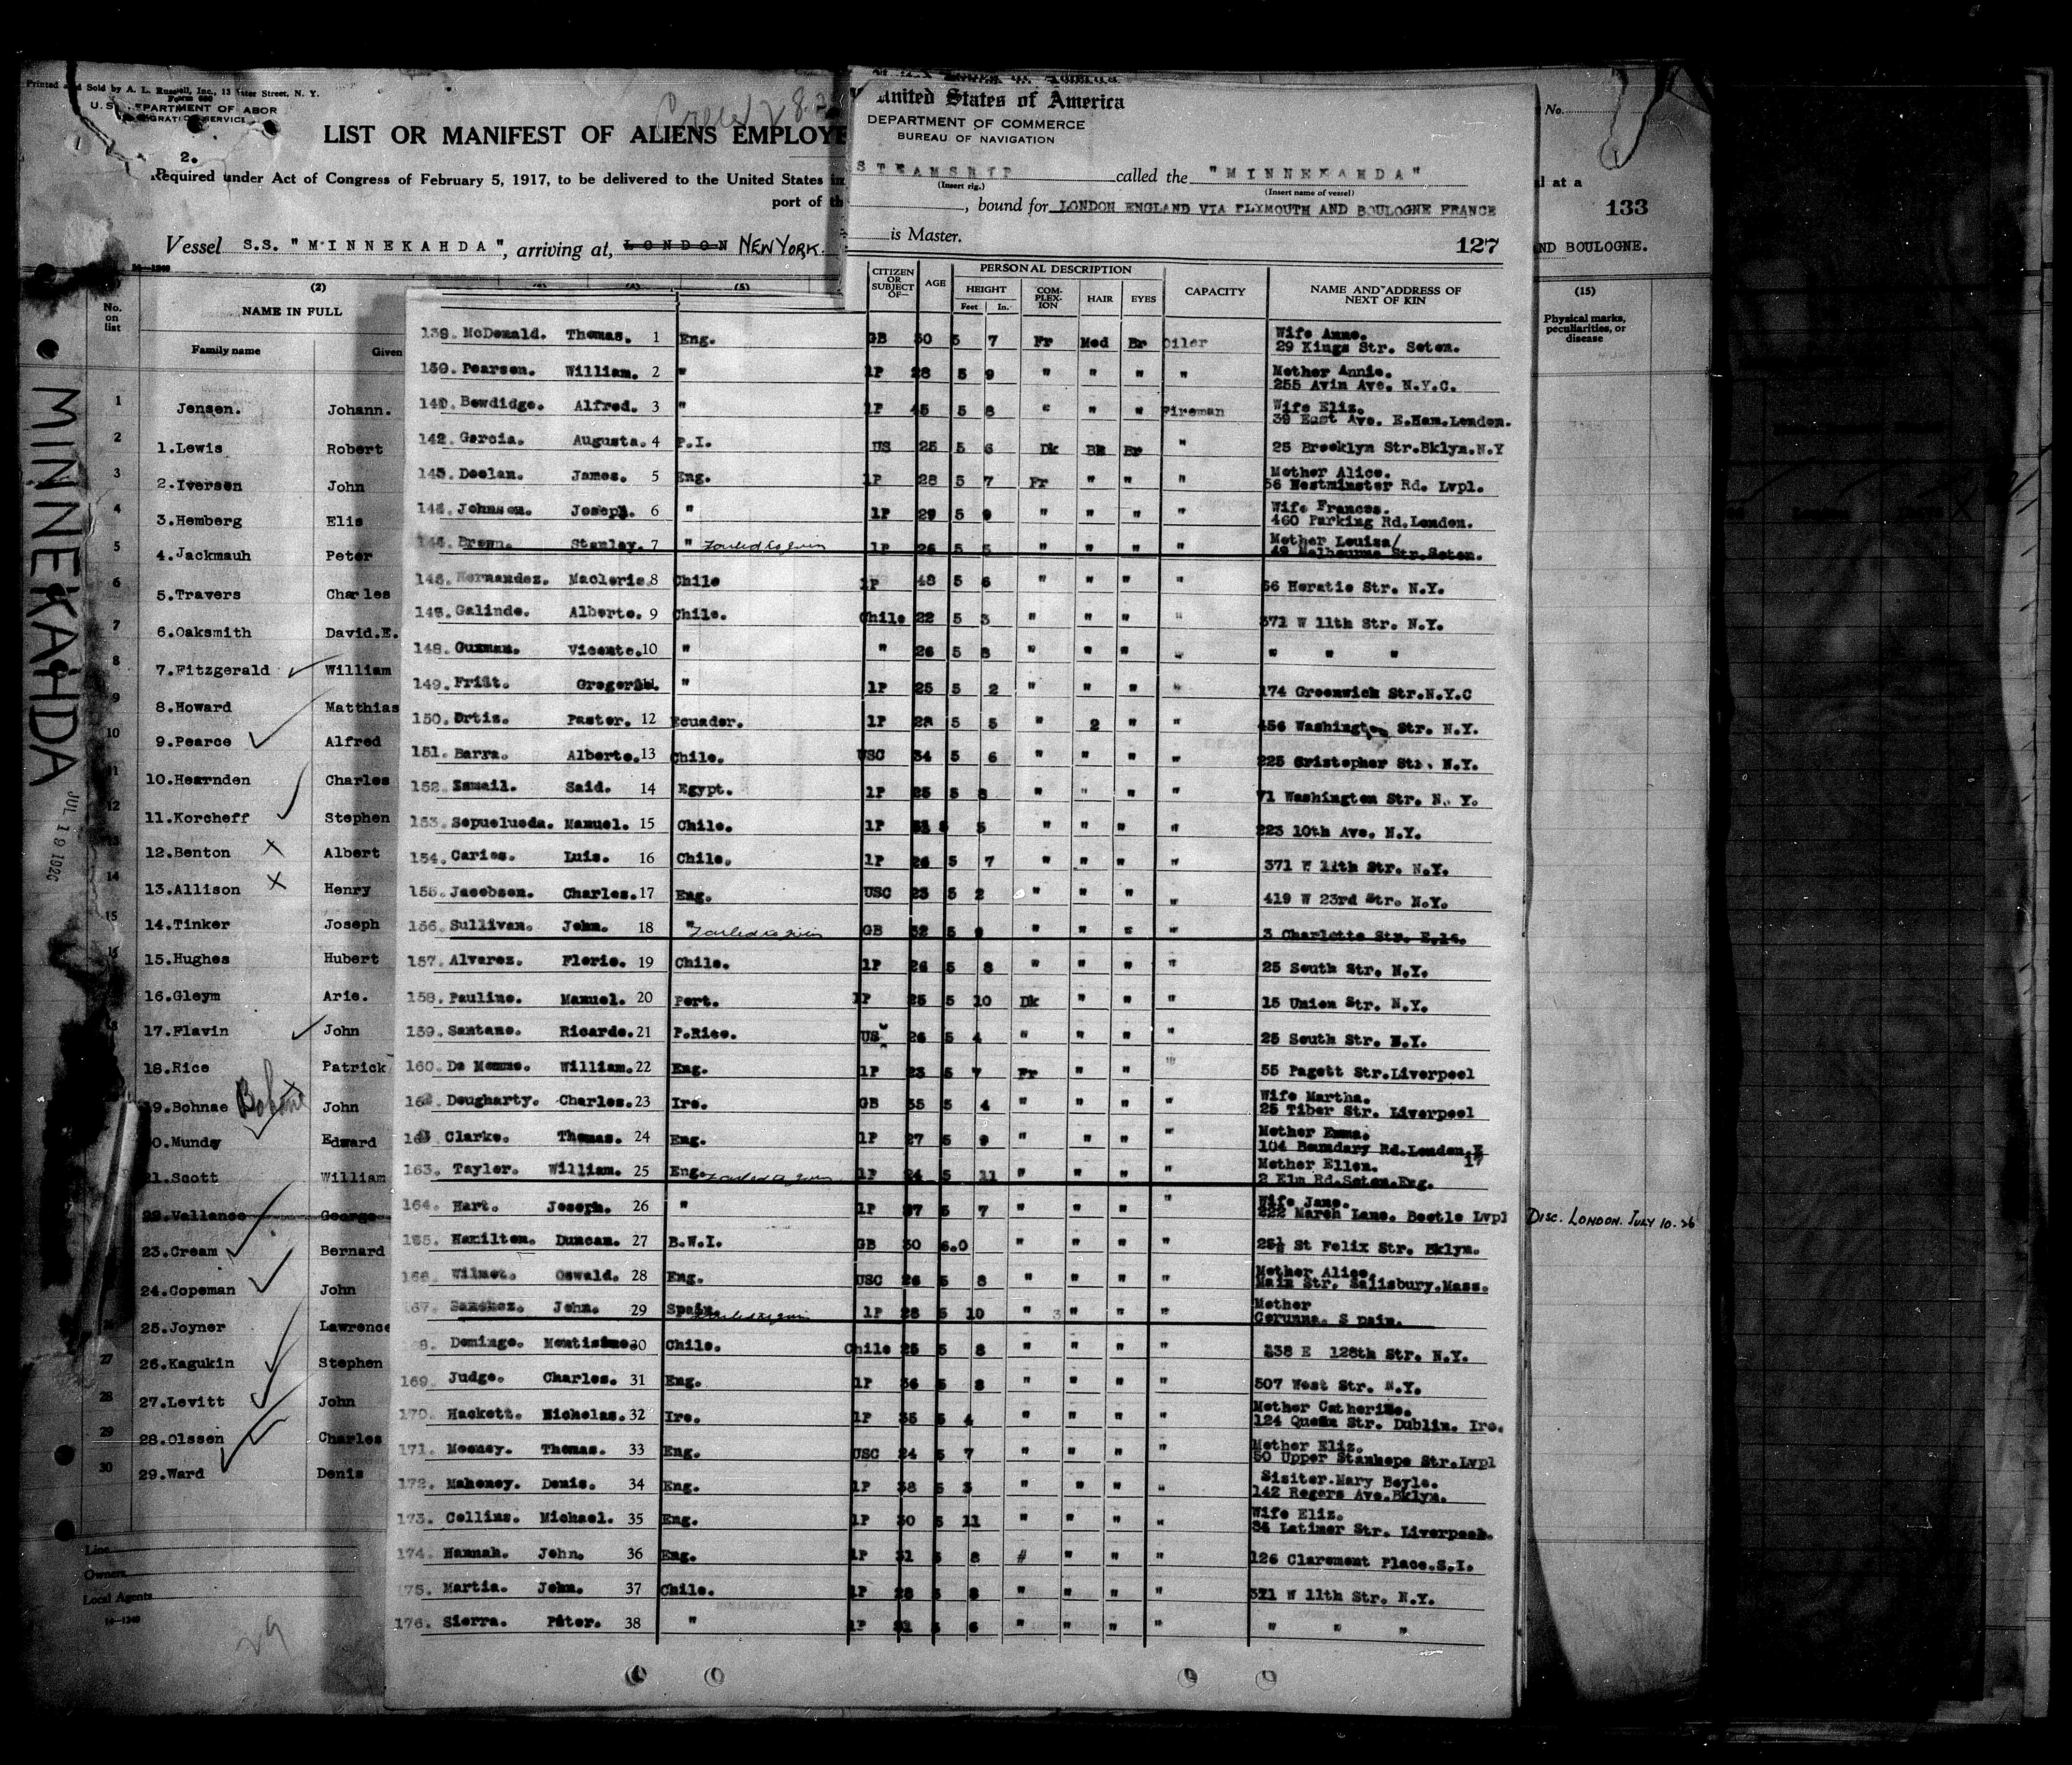 Printed and Sold by A. L. Russell, Inc., 13 Water Street, N. Y.
Form 680
U. S. DEPARTMENT OF LABOR
2.
LIST OR MANIFEST OF ALIENS EMPLOYE
Required under Act of Congress of February 5, 1917, to be delivered to the United States
port of
Vessel S.S. "MINNEKAHDA", arriving at, LONDON NEW YORK.
14—1240
(2)
No. on list
NAME IN FULL
Family name Given
MINNEKAHDA
JUL 19 1926
1 Jensen. Johann.
2 1.Lewis Robert
3 2.Iversen John
4 3.Hemberg Elis
5 4.Jackmauh Peter
6 5.Travers Charles
7 6.Oaksmith David.E.
8 7.Fitzgerald William
9 8.Howard Matthias
10 9.Pearce Alfred
11 10.Hearnden Charles
12 11.Korcheff Stephen
13 12.Benton Albert
14 13.Allison Henry
15 14.Tinker Joseph
15.Hughes Hubert
16.Gleym Arie.
17.Flavin John
18.Rice Patrick
19.Bohnae John
Mundy Edward
21.Scott William
22.Vallance George
23.Cream Bernard
24.Copeman John
25.Joyner Lawrence
27 26.Kagukin Stephen
28 27.Levitt John
29 28.Olssen Charles
30 29.Ward Denis
Line
Owners
Local Agents
14—1240
29
United States of America
DEPARTMENT OF COMMERCE
BUREAU OF NAVIGATION
STEAMSHIP called the "MINNEKAHDA"
(Insert rig.) (Insert name of vessel)
, bound for LONDON ENGLAND VIA PLYMOUTH AND BOULOGNE FRANCE
is Master.
127
CITIZEN OR SUBJECT OF— AGE PERSONAL DESCRIPTION CAPACITY NAME AND ADDRESS OF NEXT OF KIN
HEIGHT COMPLEXION HAIR EYES
Feet In.
139. McDonald. Thomas. 1 Eng. GB 30 5 7 Fr Med Br Oiler Wife Anne.
29 Kings Str. Soton.
Pearson. William. 2 " 1P 28 5 9 " " " " Mother Annie.
255 Avin Ave. N.Y.C.
Bowdidge. Alfred. 3 " 1P 45 5 8 " " " Fireman Wife Eliz.
39 East Ave. E.Ham.London.
142. Garcia. Augusta. 4 P.I. US 25 5 6 Dk Bk Br " 25 Brooklyn Str.Bklyn.N.Y
Doolan. James. 5 Eng. 1P 28 5 7 Fr " " " Mother Alice.
56 Westminster Rd. Lvpl.
Johnson. Joseph. 6 " 1P 29 5 9 " " " " Wife Frances.
460 Parking Rd.London.
Brown. Stanley. 7 " Failed to join 1P 26 5 5 " " " " Mother Louisa/
49 Melbourne Str.Soton.
Hernandez. Maclorie. 8 Chile 1P 48 5 6 " " " 66 Horatio Str. N.Y.
Galindo. Alberto. 9 Chile. Chile 22 5 3 " " " " 371 W 11th Str. N.Y.
148. Guzman. Vicente. 10 " " 26 5 8 " " " " " " "
149. " 1P 25 5 2 " " " " 174 Greenwich Str.N.Y.C
150. Ortiz. Paster. 12 Ecuador. 1P 28 5 5 " 2 " " 456 Washington Str. N.Y.
151. Barra. Alberto. 13 Chile. USC 34 5 6 " " " " 225 Cristopher Str. N.Y.
152. Ismail. Said. 14 Egypt. 1P 25 5 8 " " " " 71 Washington Str. N. Y.
153. Sepuelueda. Manuel. 15 Chile. 1P 5 " " " " 223 10th Ave. N.Y.
154. Carios. Luis. 16 Chile. 1P 26 5 7 " " " " 371 W 11th Str. N.Y.
155. Jacobsen. Charles. 17 Eng. USC 23 5 2 " " " " 419 W 23rd Str. N.Y.
156. Sullivan. John. 18 " Failed to join GB 32 5 9 " " " " 3 Charlotte Str. E.16.
157. Alvarez. Florie. 19 Chile. 1P 26 5 8 " " " " 25 South Str. N.Y.
158. Pauline. Manuel. 20 Port. 1P 25 5 10 Dk " " " 15 Union Str. N.Y.
159. Santano. Ricardo. 21 P.Rico. US 26 5 4 " " " " 25 South Str. N.Y.
160. De Memme. William. 22 Eng. 1P 23 5 7 Fr " " " 55 Pagett Str.Liverpool
Dougharty. Charles. 23 Ire. GB 35 5 4 " " " " Wife Martha.
25 Tiber Str. Liverpool
Clarke. Thomas. 24 Eng. 1P 27 5 9 " " " " Mother Emma.
104 Boundary Rd.London.E
17
163. Tayler. William. 25 Eng. Failed to join 1P 24 5 11 " " " " Mother Ellen.
2 Elm Rd.Soton.Eng.
164. Hart. Joseph. 26 " 1P 37 5 7 " " " " Wife Jane.
222 Marsh Lane. Bootle Lvpl
165. Hamilton. Duncan. 27 B.W.I. GB 30 6.0 " " " " 25½ St Felix Str. Bklyn.
166. Wilmot. Oswald. 28 Eng. USC 26 5 8 " " " " Mother Alice.
Main Str. Salisbury.Mass.
167. Sanchez. John. 29 Spain. Failed to join 1P 28 5 10 " 3 " " " Mother
Corunna. S pain.
Domingo. Montisimo. 30 Chile. Chile 25 5 8 " " " " 238 E 128th Str. N.Y.
169. Judge. Charles. 31 Eng. 1P 36 5 8 " " " " 507 West Str. N.Y.
170. Hackett. Nicholas. 32 Ire. 1P 35 5 4 " " " " Mother Catherine.
124 Queen Str. Dublin. Ire.
171. Mooney. Thomas. 33 Eng. USC 24 5 7 " " " " Mother Eliz.
50 Upper Stanhope Str.Lvpl
172. Mahoney. Denis. 34 Eng. 1P 38 5 3 " " " " Sisiter.Mary Boyle.
142 Rogers Ave.Bklyn.
173. Collins. Michael. 35 Eng. 1P 30 5 11 " " " " Wife Eliz.
34 Latimer Str. Liverpool.
174. Hannah. John. 36 Eng. 1P 31 5 8 # " " " 126 Claremont Place.S.I.
175. Martia. John. 37 Chile. 1P 28 5 8 " " " " 371 W 11th Str. N.Y.
176. Sierra. Peter. 38 " 1P 31 5 6 " " " " " " "
No.
l at a
133
ND BOULOGNE.
(15)
Physical marks, peculiarities, or disease
DISC. LONDON. JULY 10. 26